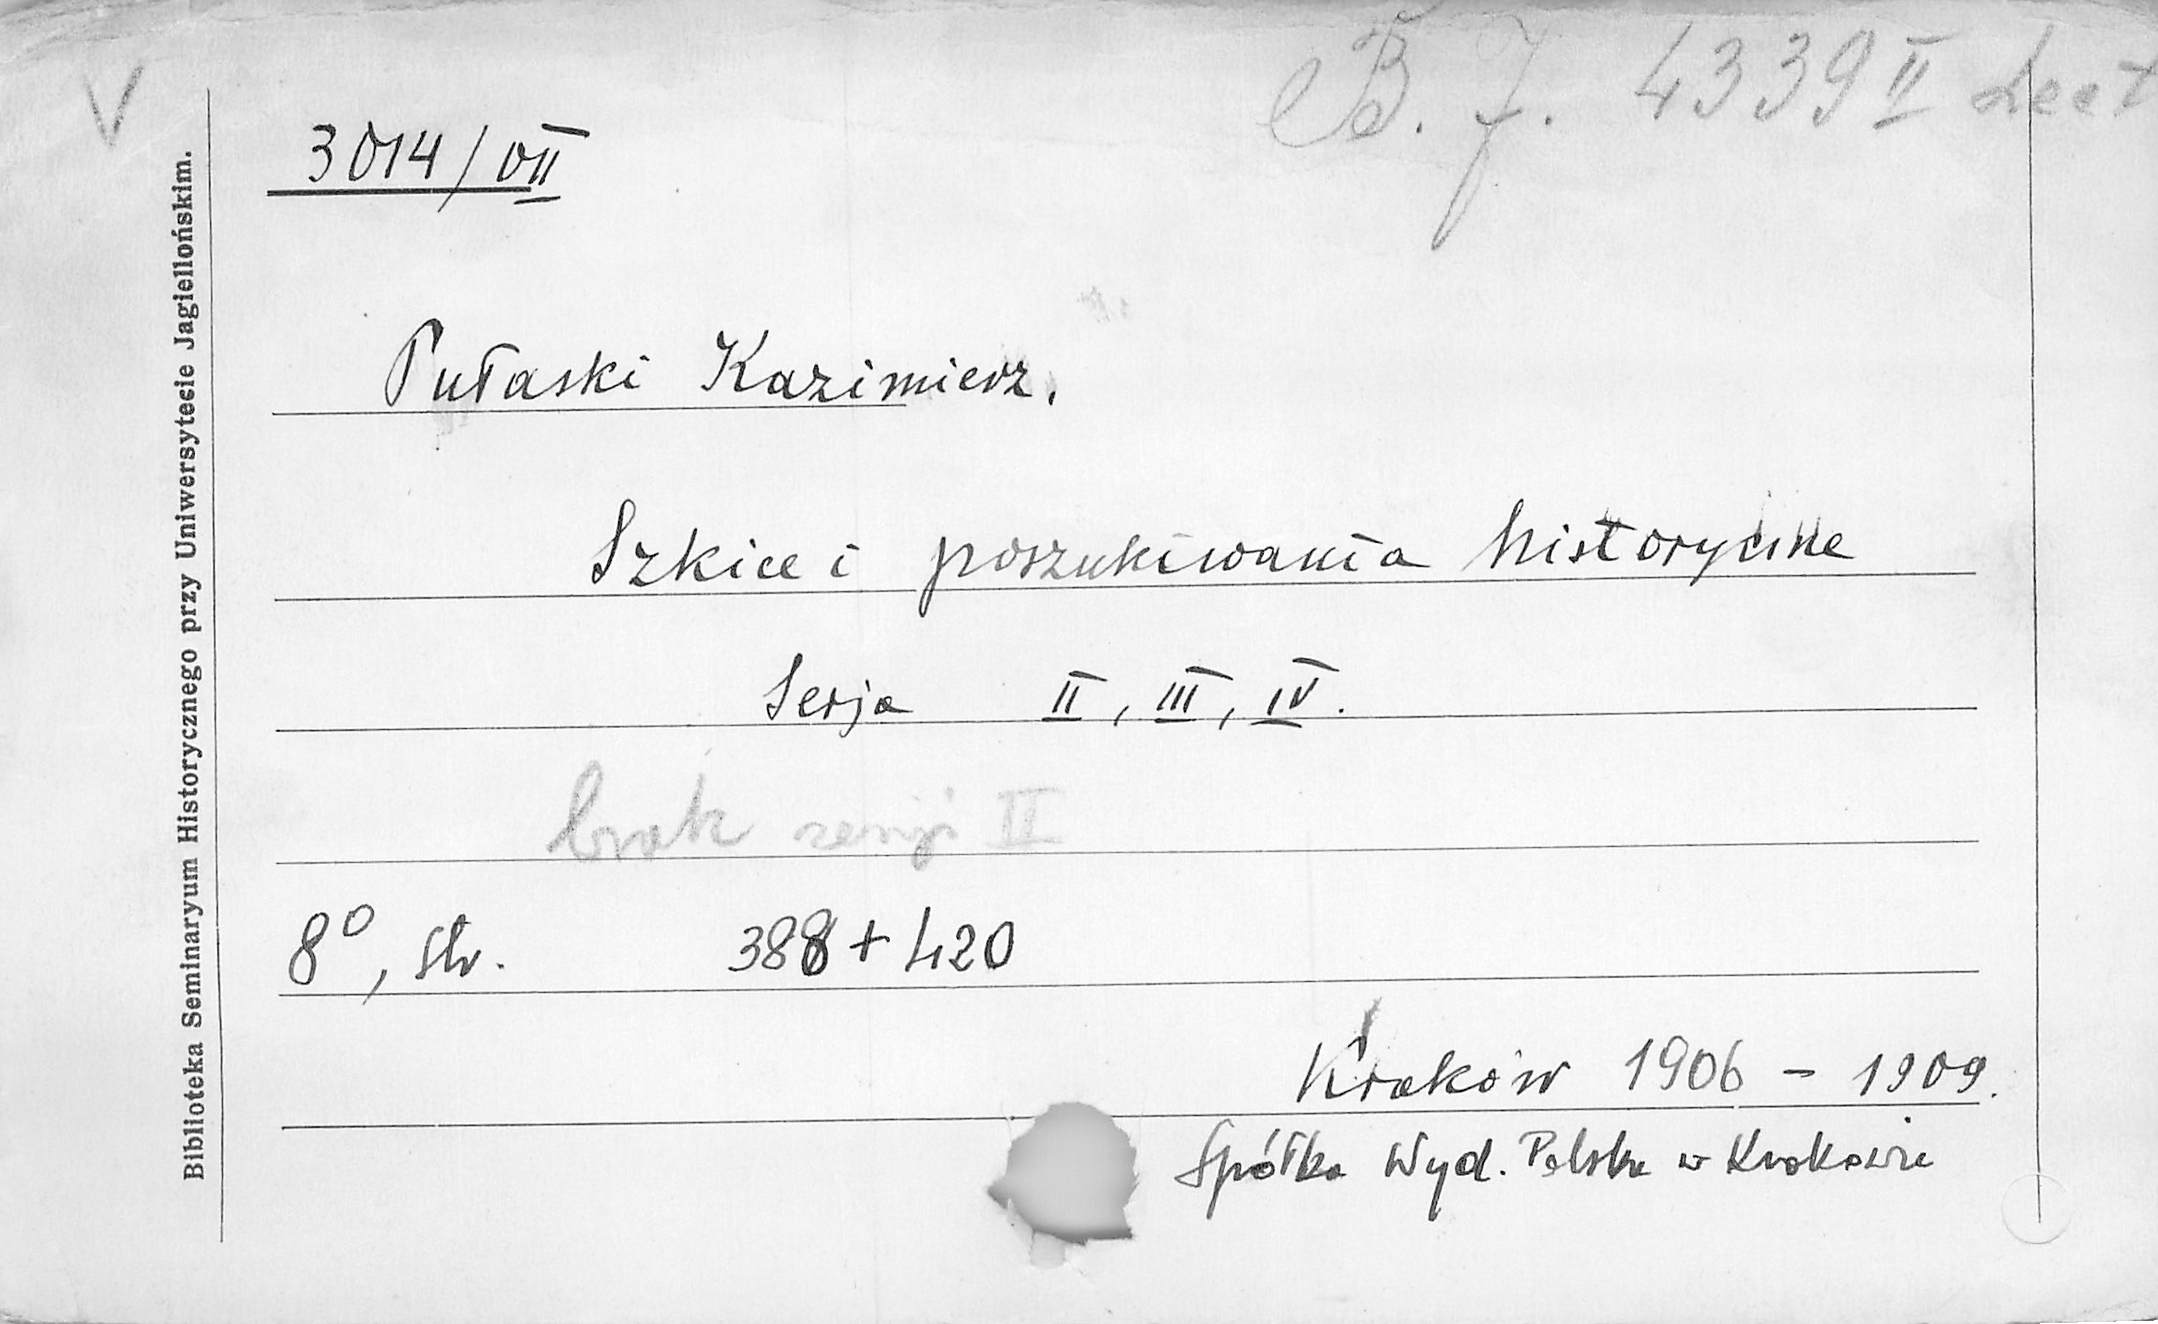 V
B. J. 4339 II Lect
3014/VII
Bibljoteka Seminaryum Historycznego przy Uniwersytecie Jagiellońskim.
Pułaski Kazimierz.
Szkice i poszukiwania historyczne
Serja II, III, IV.
brak serji II
8⁰, str. 388 + 420
Kraków 1906 – 1909.
Spółka Wyd. Polska w Krakowie